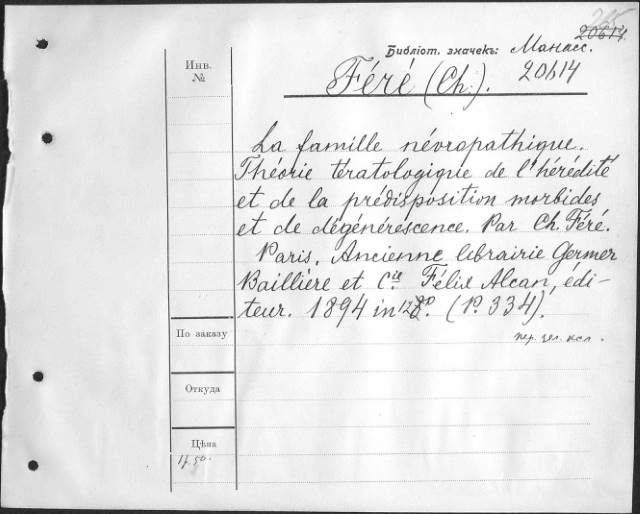 265
20614
Библіот. значекъ: Манасс.
Инв.
№
Féré (Ch.). 20614
La famille névropathique.
Théorie tératologique de l'hérédité
et de la prédisposition morbides
et de dégénéréscence. Par Ch. Féré.
Paris. Ancienne librairie Germer
Baillière et Cie Félix Alcan, édi-
teur. 1894 in 12º. (p. 334).
По заказу
пер. зел. кол.
Откуда
Цѣна